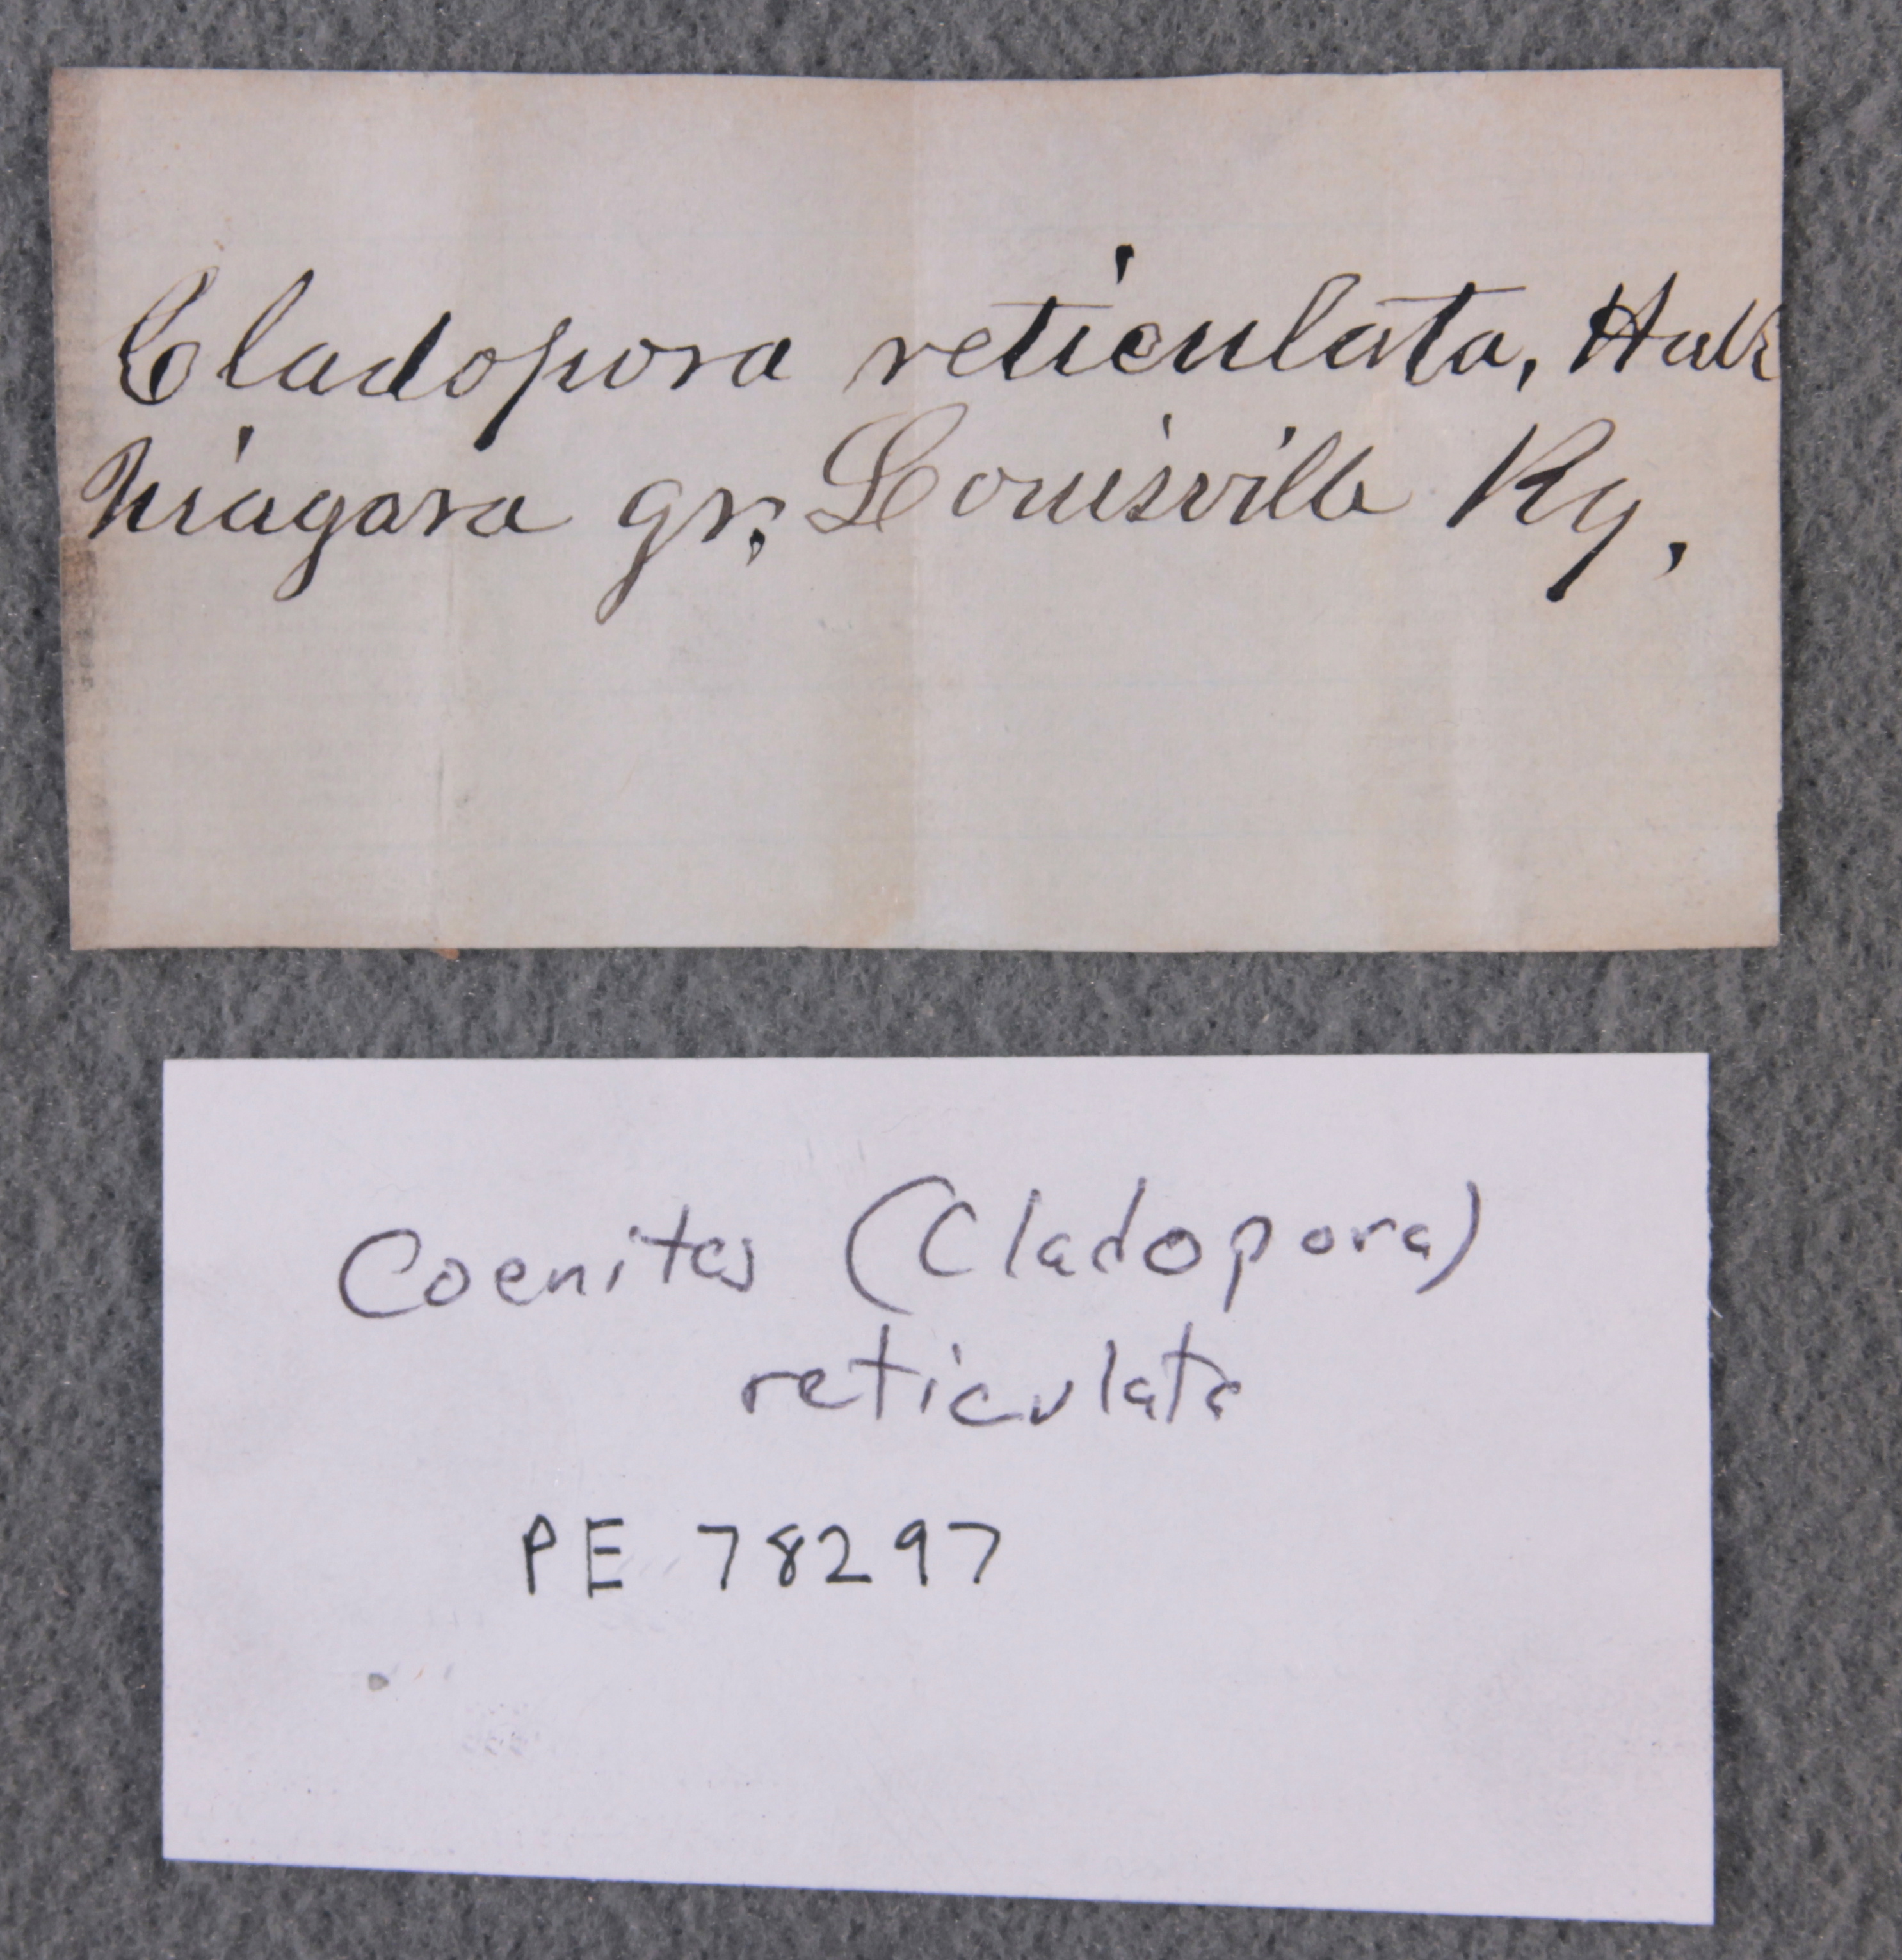 Cladopora reticulata, Hall
Niagara gr. Louisville Ky.
Coenites (Cladopora)
reticulata
PE 78297